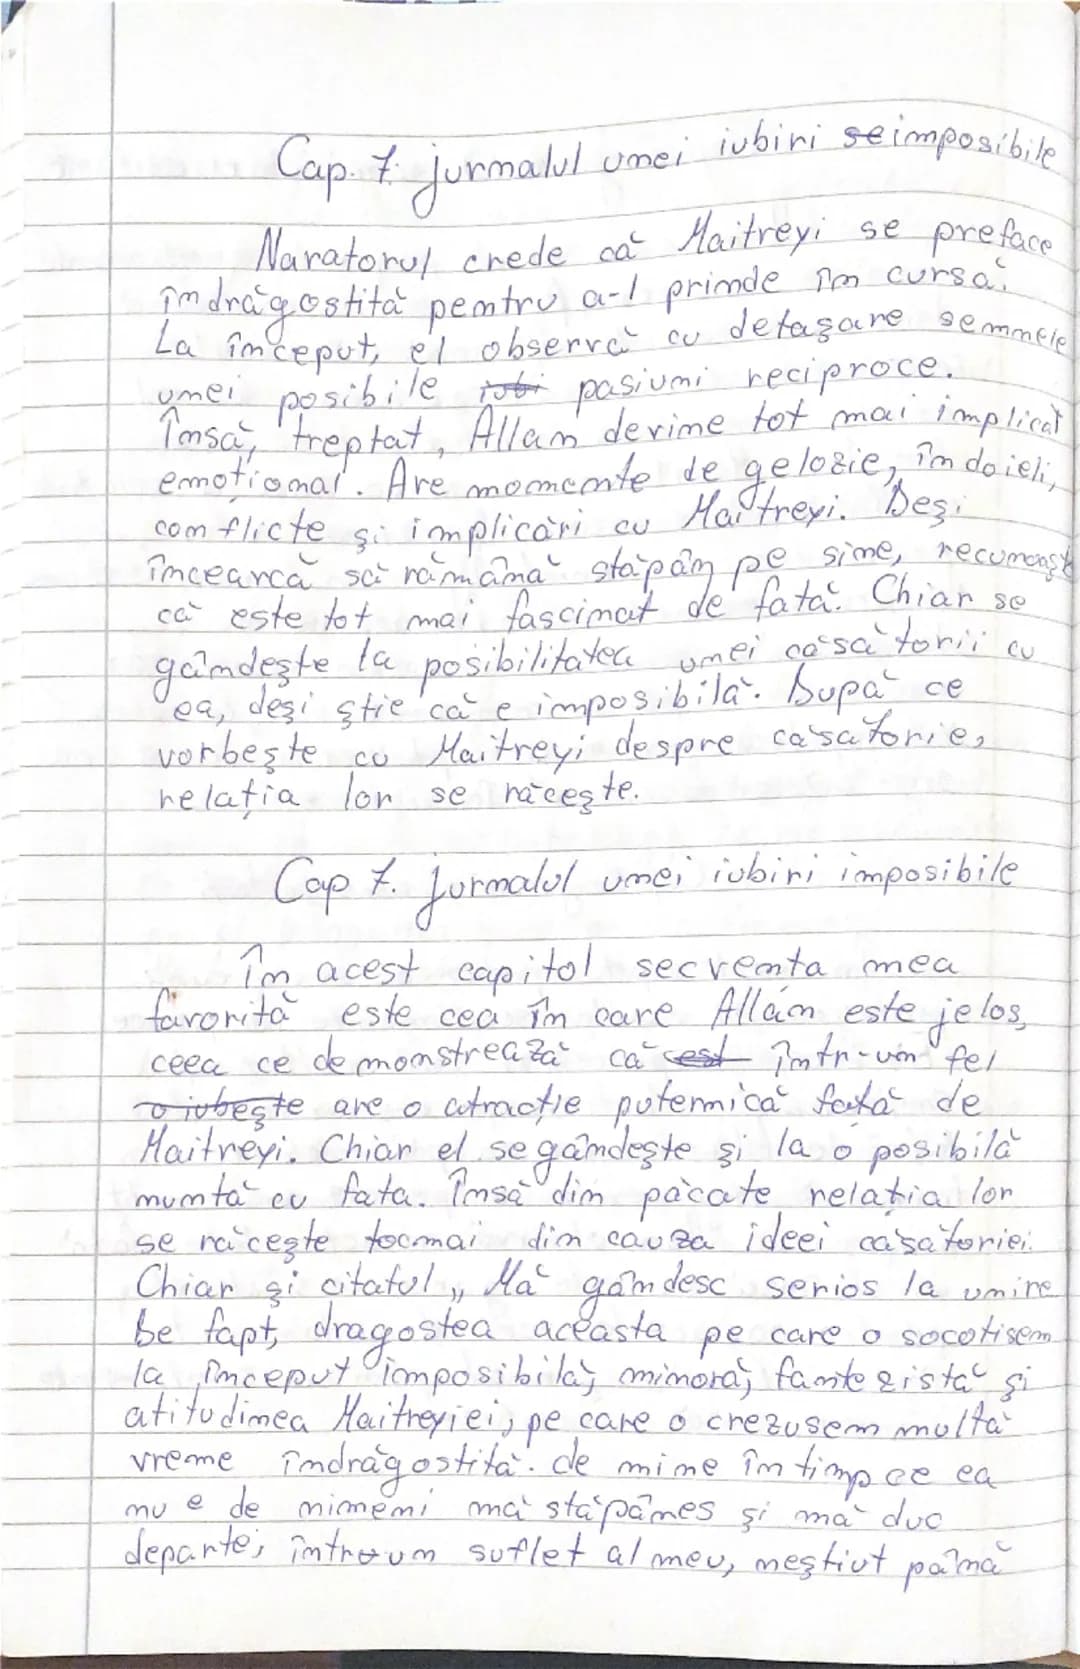 Cap. 7. jurnalul unei iubiri se imposibile
Naratorul crede că Maitreyi se preface
îndrăgostită pentru a-l prinde în cursă.
La început, el observă cu detașare semnele
unei posibile iubi pasiuni reciproce.
Însă, treptat, Allan devine tot mai implicat
emoțional. Are momente de gelozie, îndoieli,
conflicte și implicări cu Maitreyi. Deși
încearcă să rămână stăpân pe sine, recunoaște
că este tot mai fascinat de fată. Chiar se
gândește la posibilitatea unei căsătorii cu
ea, deși știe că e imposibilă. După ce
vorbește cu Maitreyi despre căsătorie,
relația lor se răcește.
Cap 7. jurnalul unei iubiri imposibile
În acest capitol secventa mea
favorită este cea în care Allan este jelos,
ceea ce demonstrează că est într-un fel
o iubește are o atracție puternică fată de
Maitreyi. Chiar el se gândește și la o posibilă
nuntă cu fata. Însă din păcate relația lor
se răcește tocmai din cauza ideei căsătoriei.
Chiar și citatul „ Mă gândesc serios la unire
De fapt, dragostea aceasta pe care o socotisem
la început imposibilă; minoră; fantezistă și
atitudinea Maitreyiei, pe care o crezusem multă
vreme îndrăgostită. de mine în timp ce ea
nu e de nimeni mă stăpânes și mă duc
departe; într-un suflet al meu, neștiut până